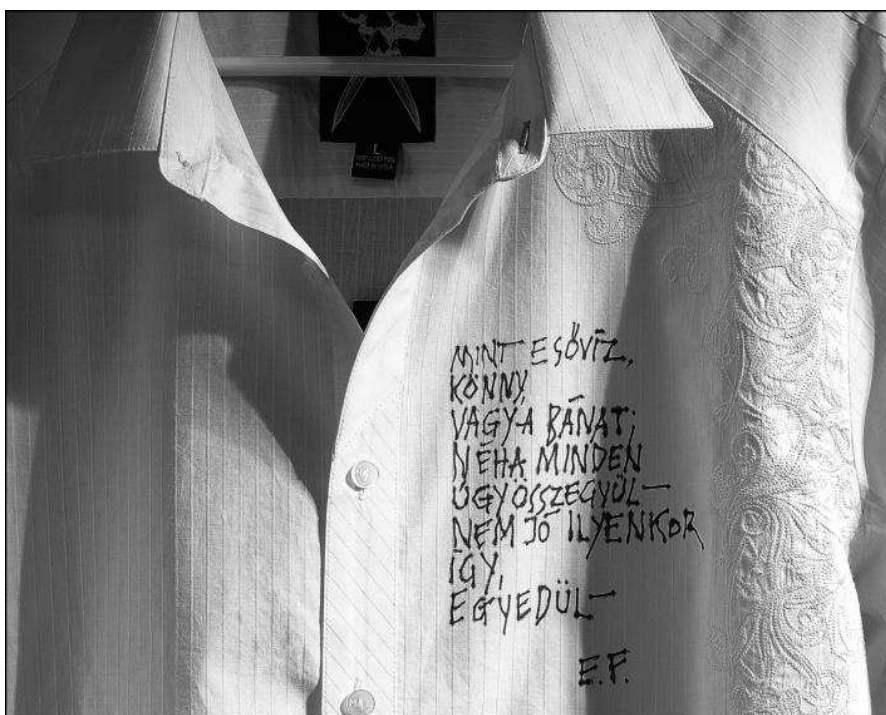 L
MINT ESŐVÍZ,
KÖNNY,
VAGY A BÁNAT;
NÉHA MINDEN
ÚGY ÖSSZEGYÜL—
NEM JÓ ILYENKOR
ÍGY,
EGYEDÜL—
E.F.